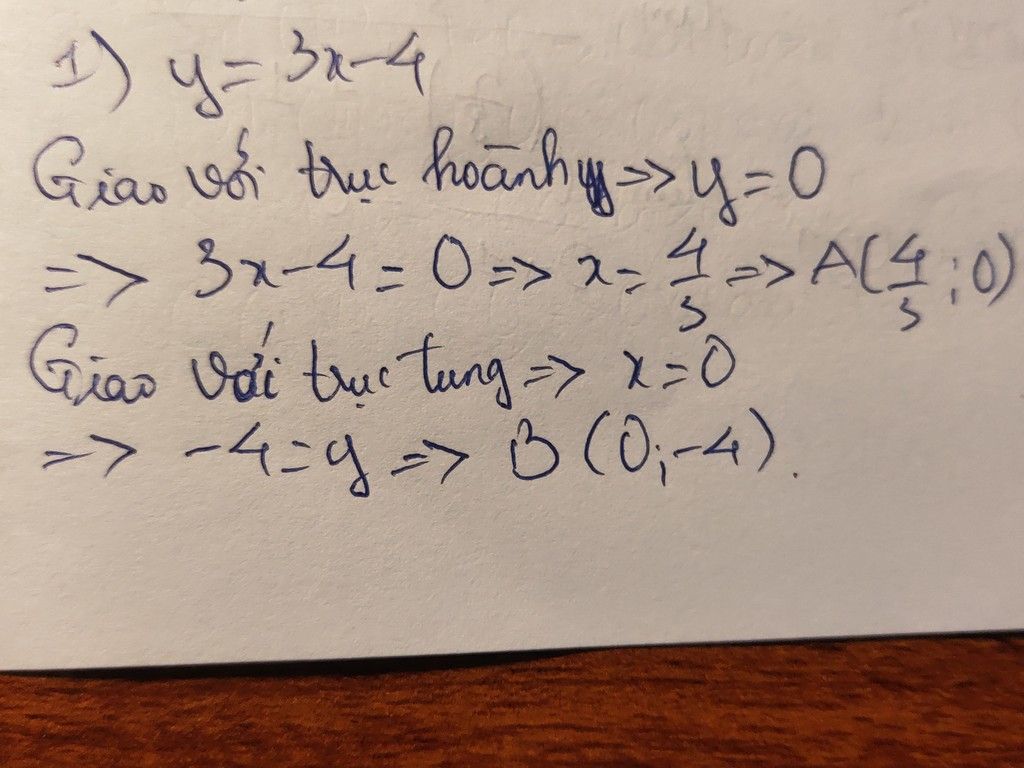 1) y = 3x - 4
Giao với trục hoành => y = 0
=> 3x - 4 = 0 => x = 4/3 => A(4/3; 0)
Giao với trục tung => x = 0
=> -4 = y => B (0; -4).